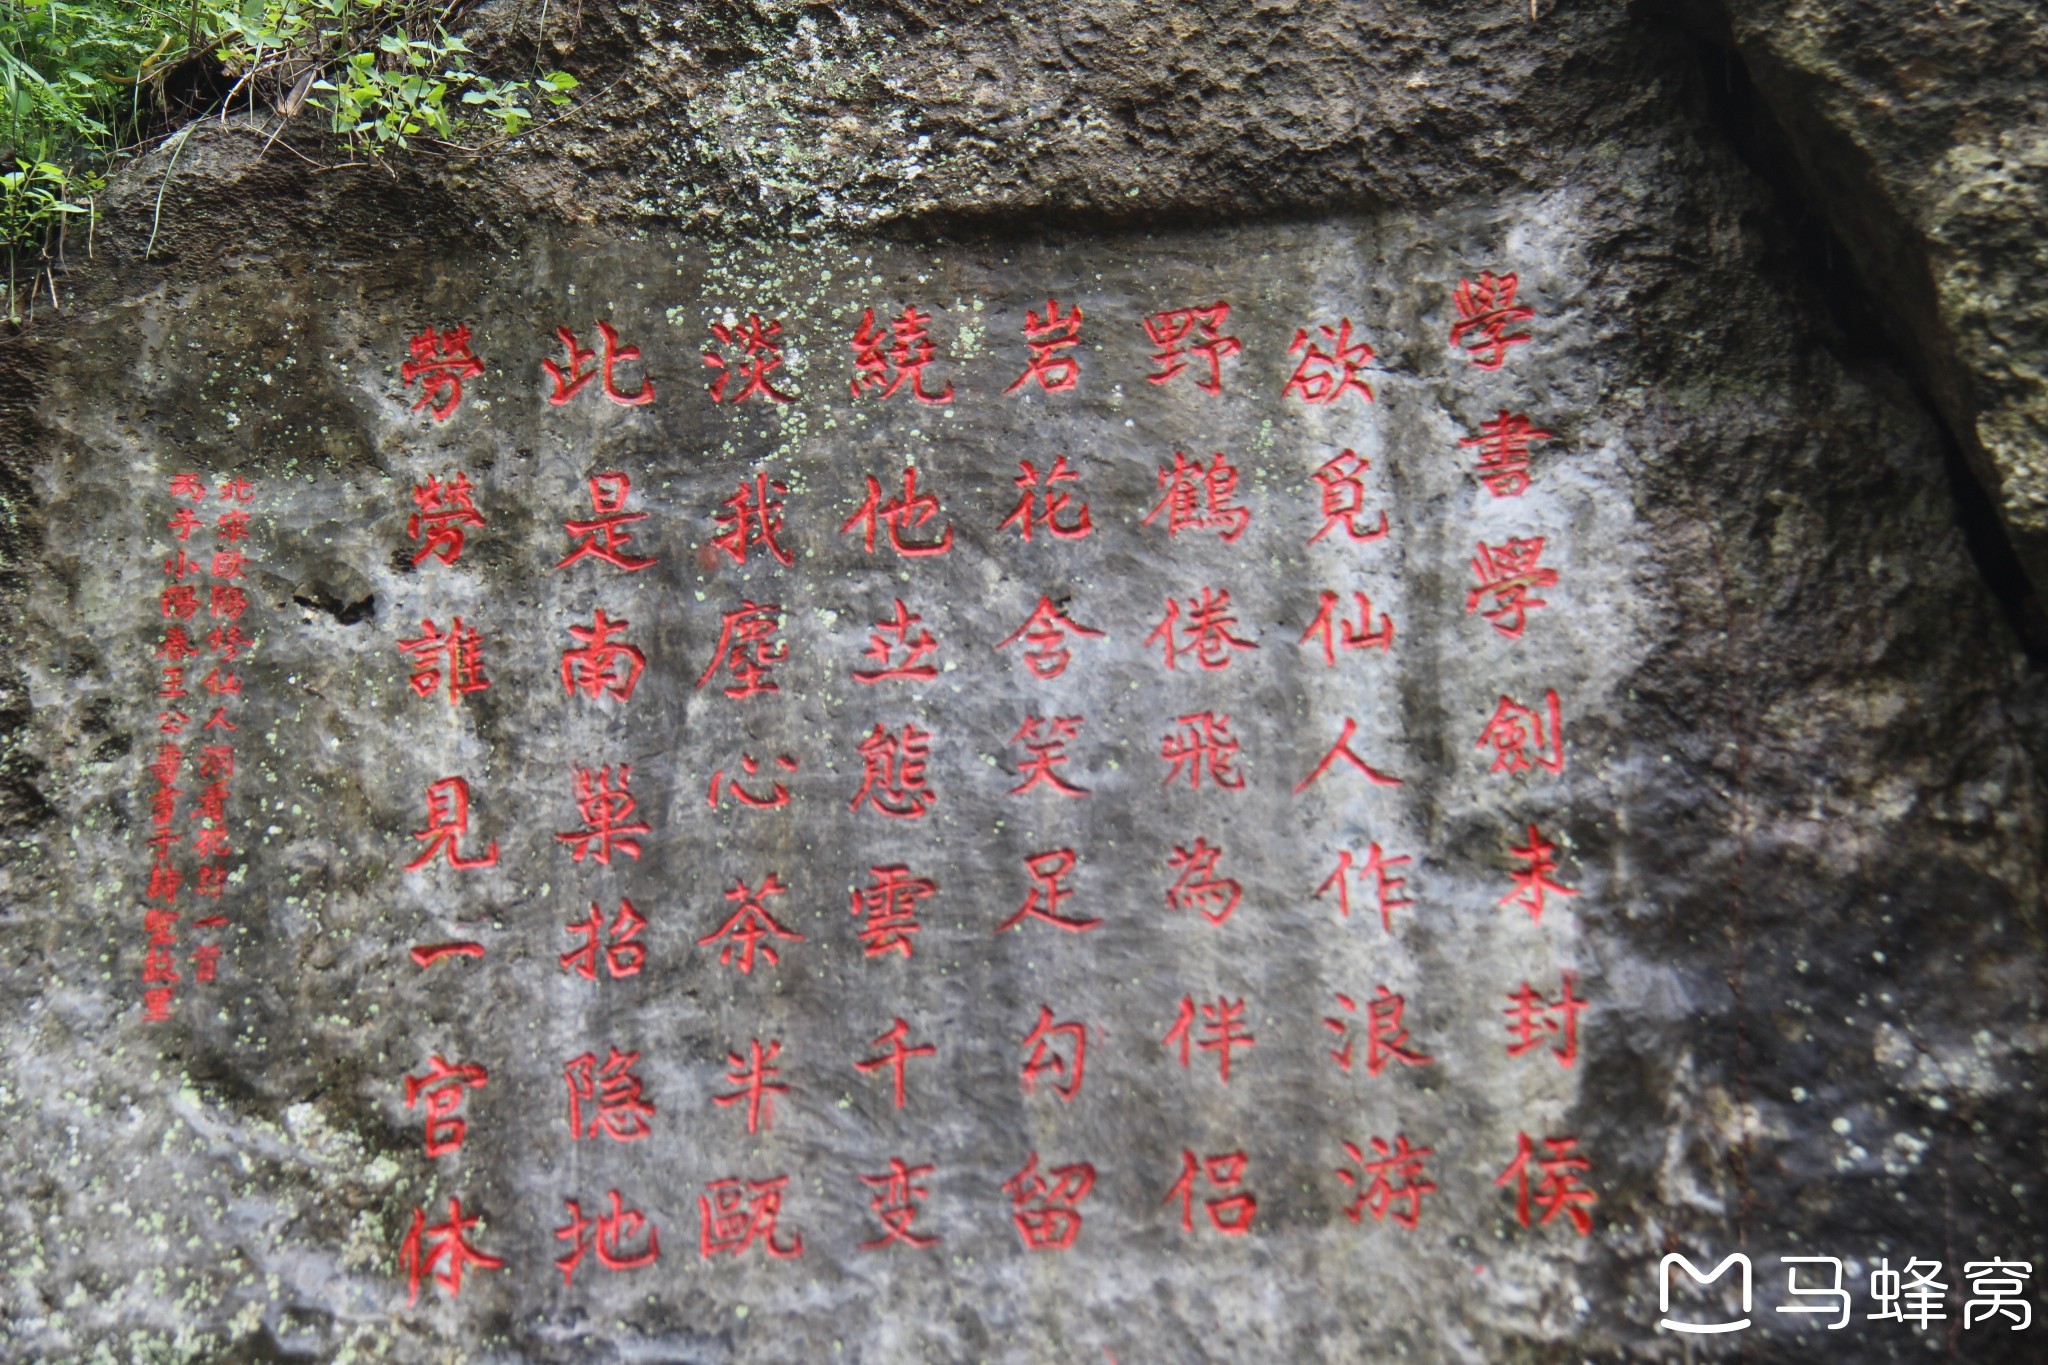 學書學劍未封侯
欲覓仙人作浪游
野鶴倦飛為伴侣
岩花含笑足勾留
繞他世態雲千变
淡我塵心茶半甌
此是南巢招隐地
勞勞誰見一官休
北宋歐陽修仙人洞賞花詩一首
丙子小陽春王公
马蜂窝